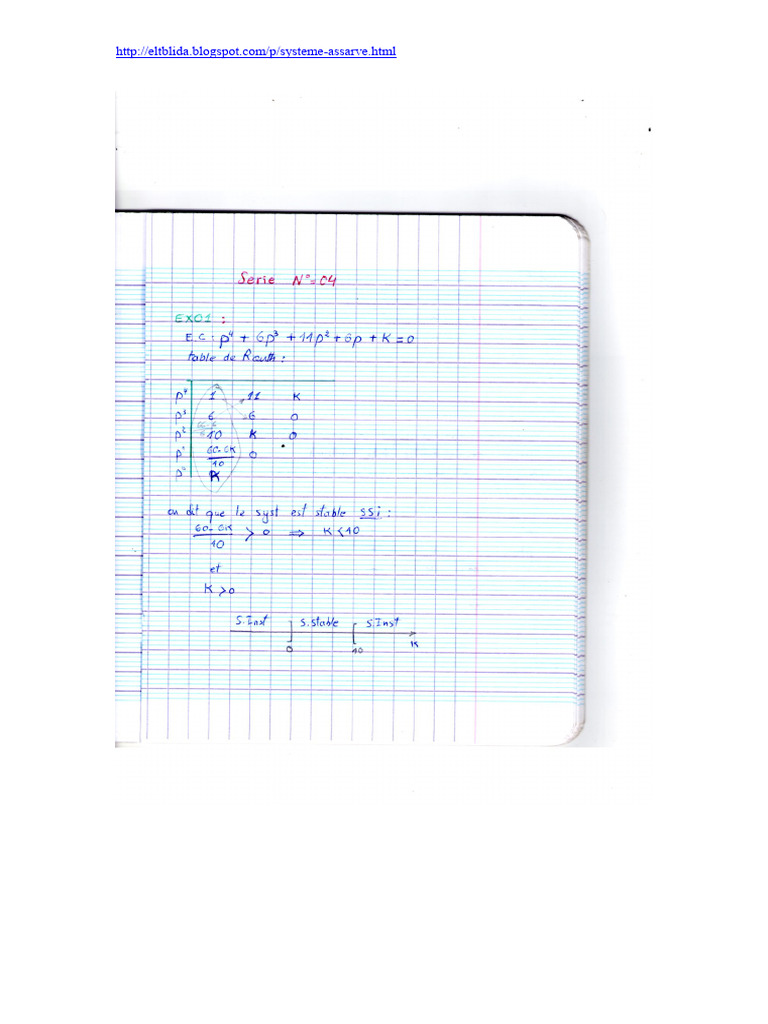 http://eltblida.blogspot.com/p/systeme-assarve.html
Serie N°=04
EX01 :
E.C : p⁴ + 6p³ + 11p² + 6p + K = 0
table de Routh :
p⁴ 1 11 K
p³ 6 6 0
p² 10 K 0
p¹ 60-6K/10 0
p⁰ K
on dit que le syst est stable SSi :
60-6K/10 > 0 ⇒ K < 10
et
K > 0
S.Inst S.stable S.Inst
0 10 K